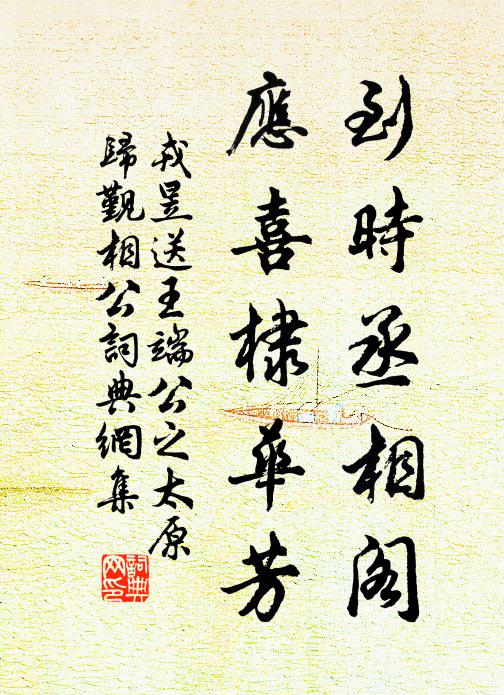 到時丞相閣
應喜棣華芳
戎昱送王端公之太原
歸覲相公詞典網集
詞典网印